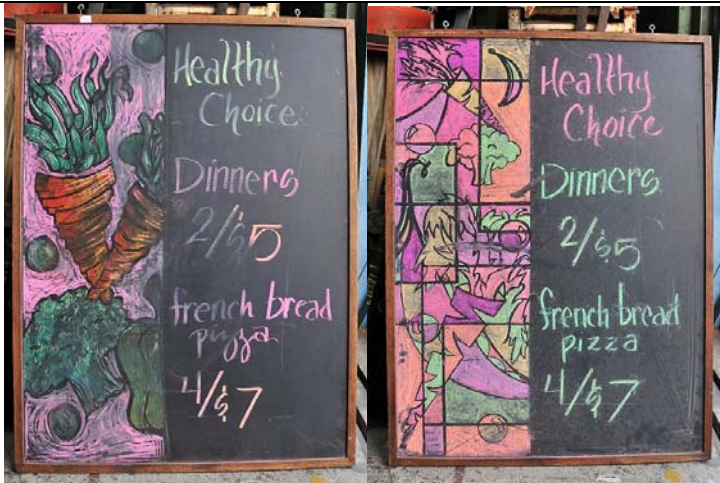 Healthy
Choice
Dinners
2/$5
french bread
pizza
4/$7
Healthy
Choice
Dinners
2/$5
french bread
pizza
4/$7